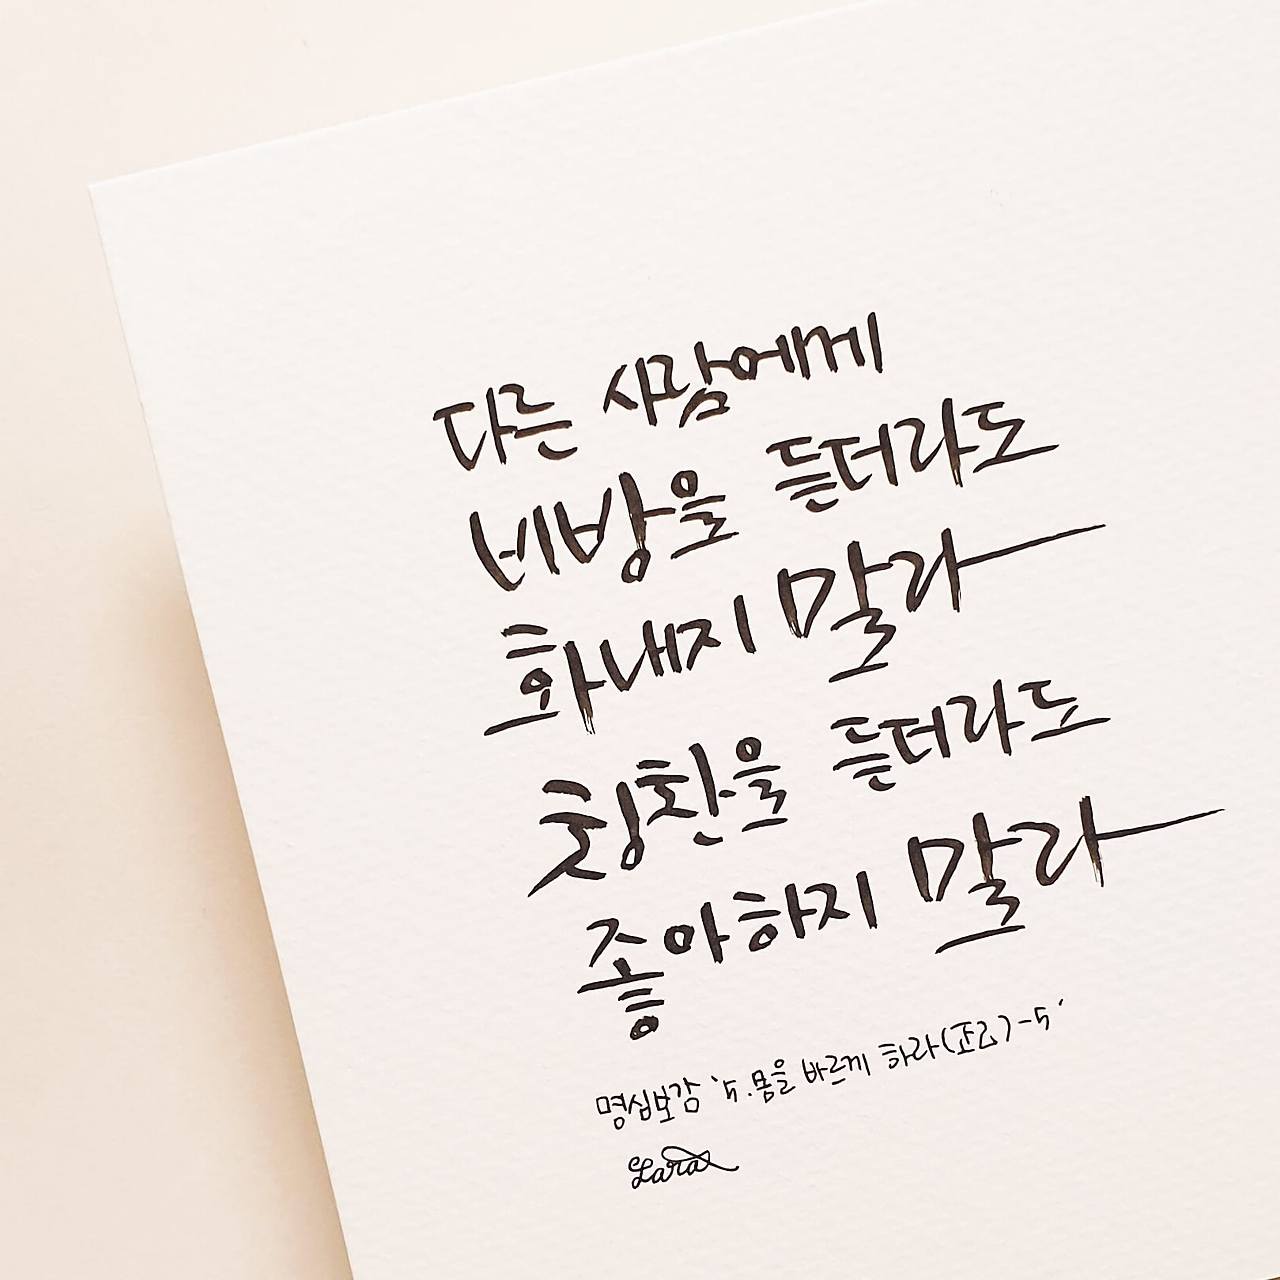 다른 사람에게
비방을 듣더라도
화내지 말라
칭찬을 듣더라도
좋아하지 말라
명심보감 '5.몸을 바르게 하라(正己)-5'
Lara